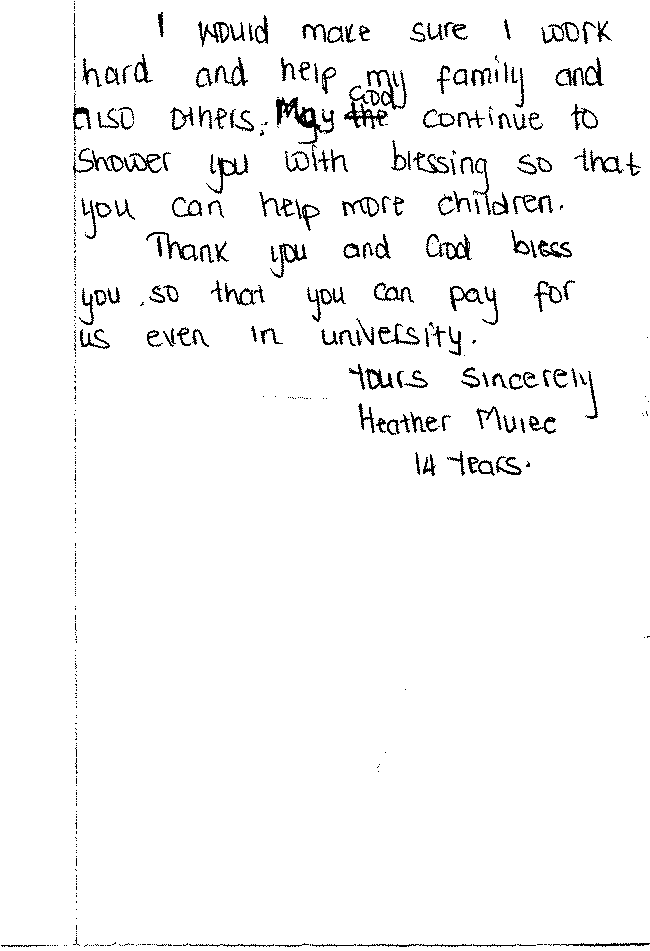 I would make sure I work
hard and help my family and
also others. May God continue to
shower you with blessing so that
you can help more children.
Thank you and God bless
you so that you can pay for
us even in university.
Yours Sincerely
Heather
14 Years.